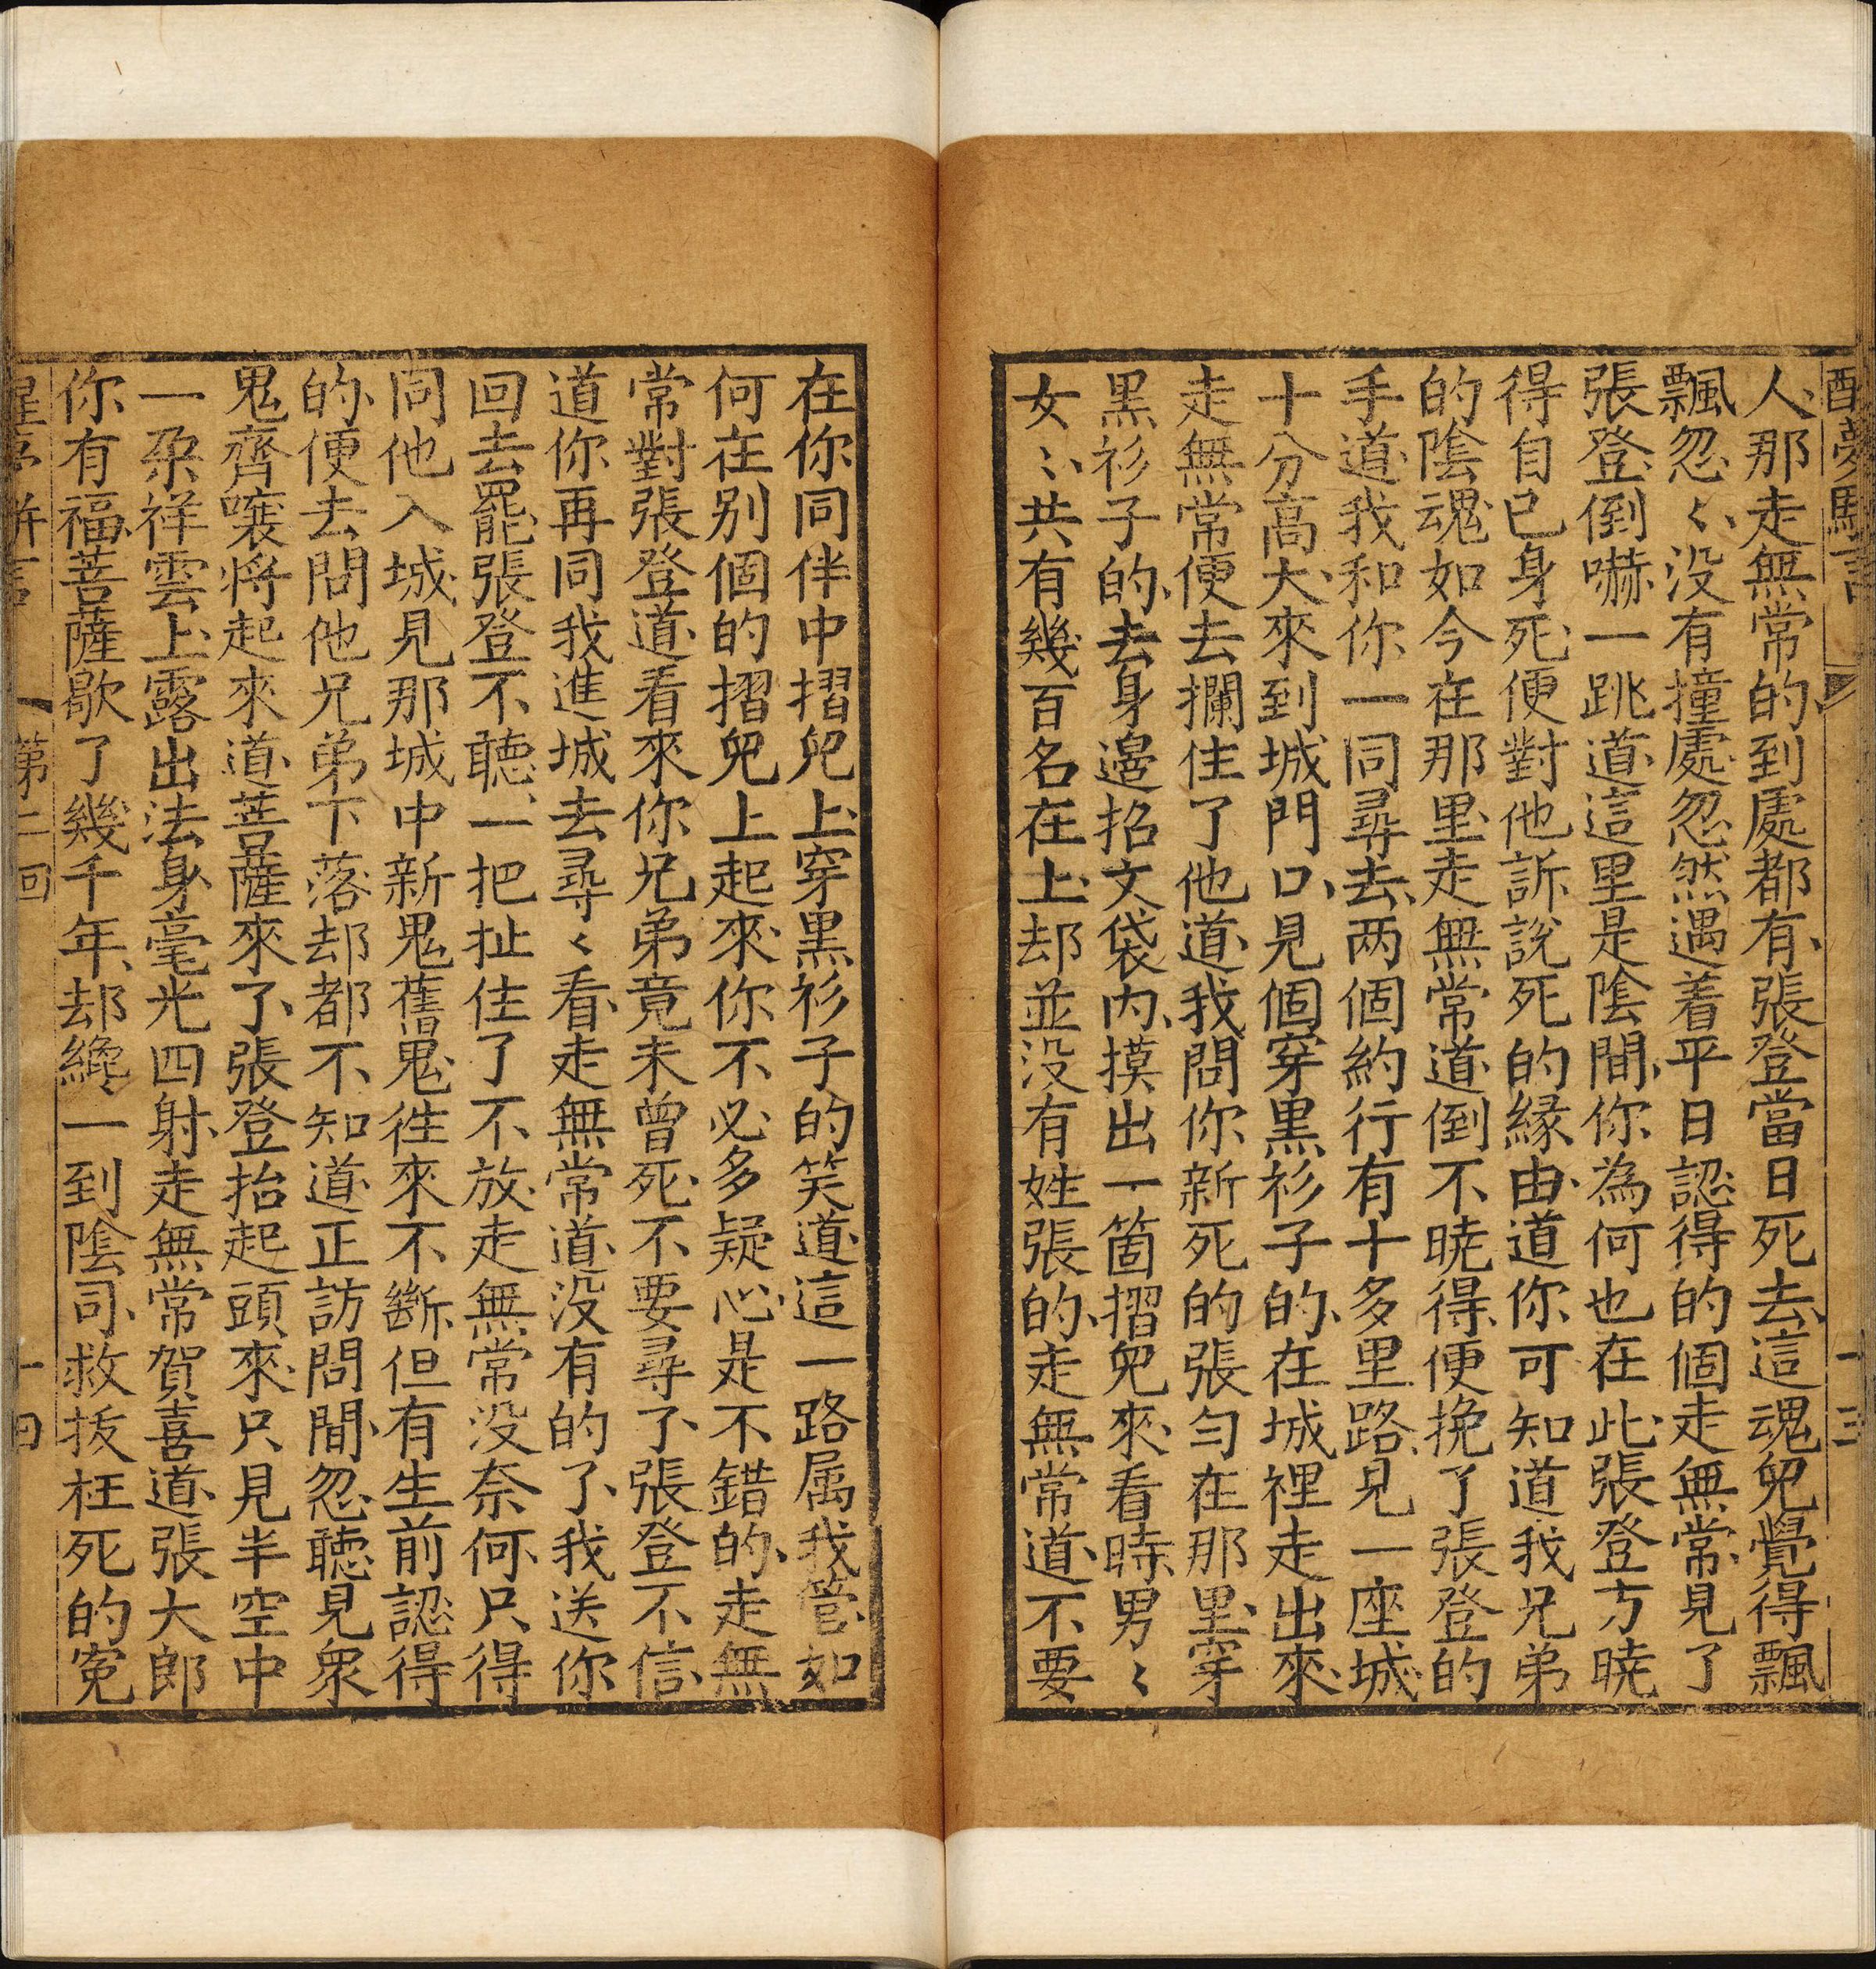 醒夢駢言 十三
人、那走無常的、到處都有、張登當日死去、這魂兒覺得飄
飄忽〻、没有撞處、忽然遇着平日認得的個走無常、見了
張登、倒嚇一跳道、這里是陰間、你為何也在此、張登方曉
得自已身死、便對他訴說死的緣由、道你可知道我兄弟
的陰魂、如今在那里、走無常道、倒不曉得、便挽了張登的
手道、我和你一同尋去、两個約行有十多里路、見一座城、
十分高大、來到城門口、見個穿黑衫子的、在城裡走出來、
走無常便去攔住了他道、我問你新死的張勻在那里、穿
黑衫子的、去身邊招文袋内、摸出一箇摺兒來、看時、男〻
女〻、共有幾百名在上、却並没有姓張的、走無常道、不要
在你同伴中摺兒上、穿黑衫子的笑道、這一路属我管、如
何在别個的摺兒上起來、你不必多疑心、是不錯的、走無
常對張登道、看來你兄弟竟未曾死、不要尋了、張登不信、
道你再同我進城去尋〻看、走無常道、没有的了、我送你
回去罷、張登不聽、一把扯住了不放、走無常没奈何、只得
同他入城、見那城中新鬼舊鬼、徃來不斷、但有生前認得
的、便去問他兄弟下落、却都不知道、正訪問間、忽聽見衆
鬼齊嚷將起來道、菩薩來了、張登抬起頭來、只見半空中
一朶祥雲上、露出法身、毫光四射、走無常賀喜道、張大郎
你有福、菩薩歇了幾千年、却纔一到陰司、救拔枉死的寃
醒夢駢言 第二回 十四